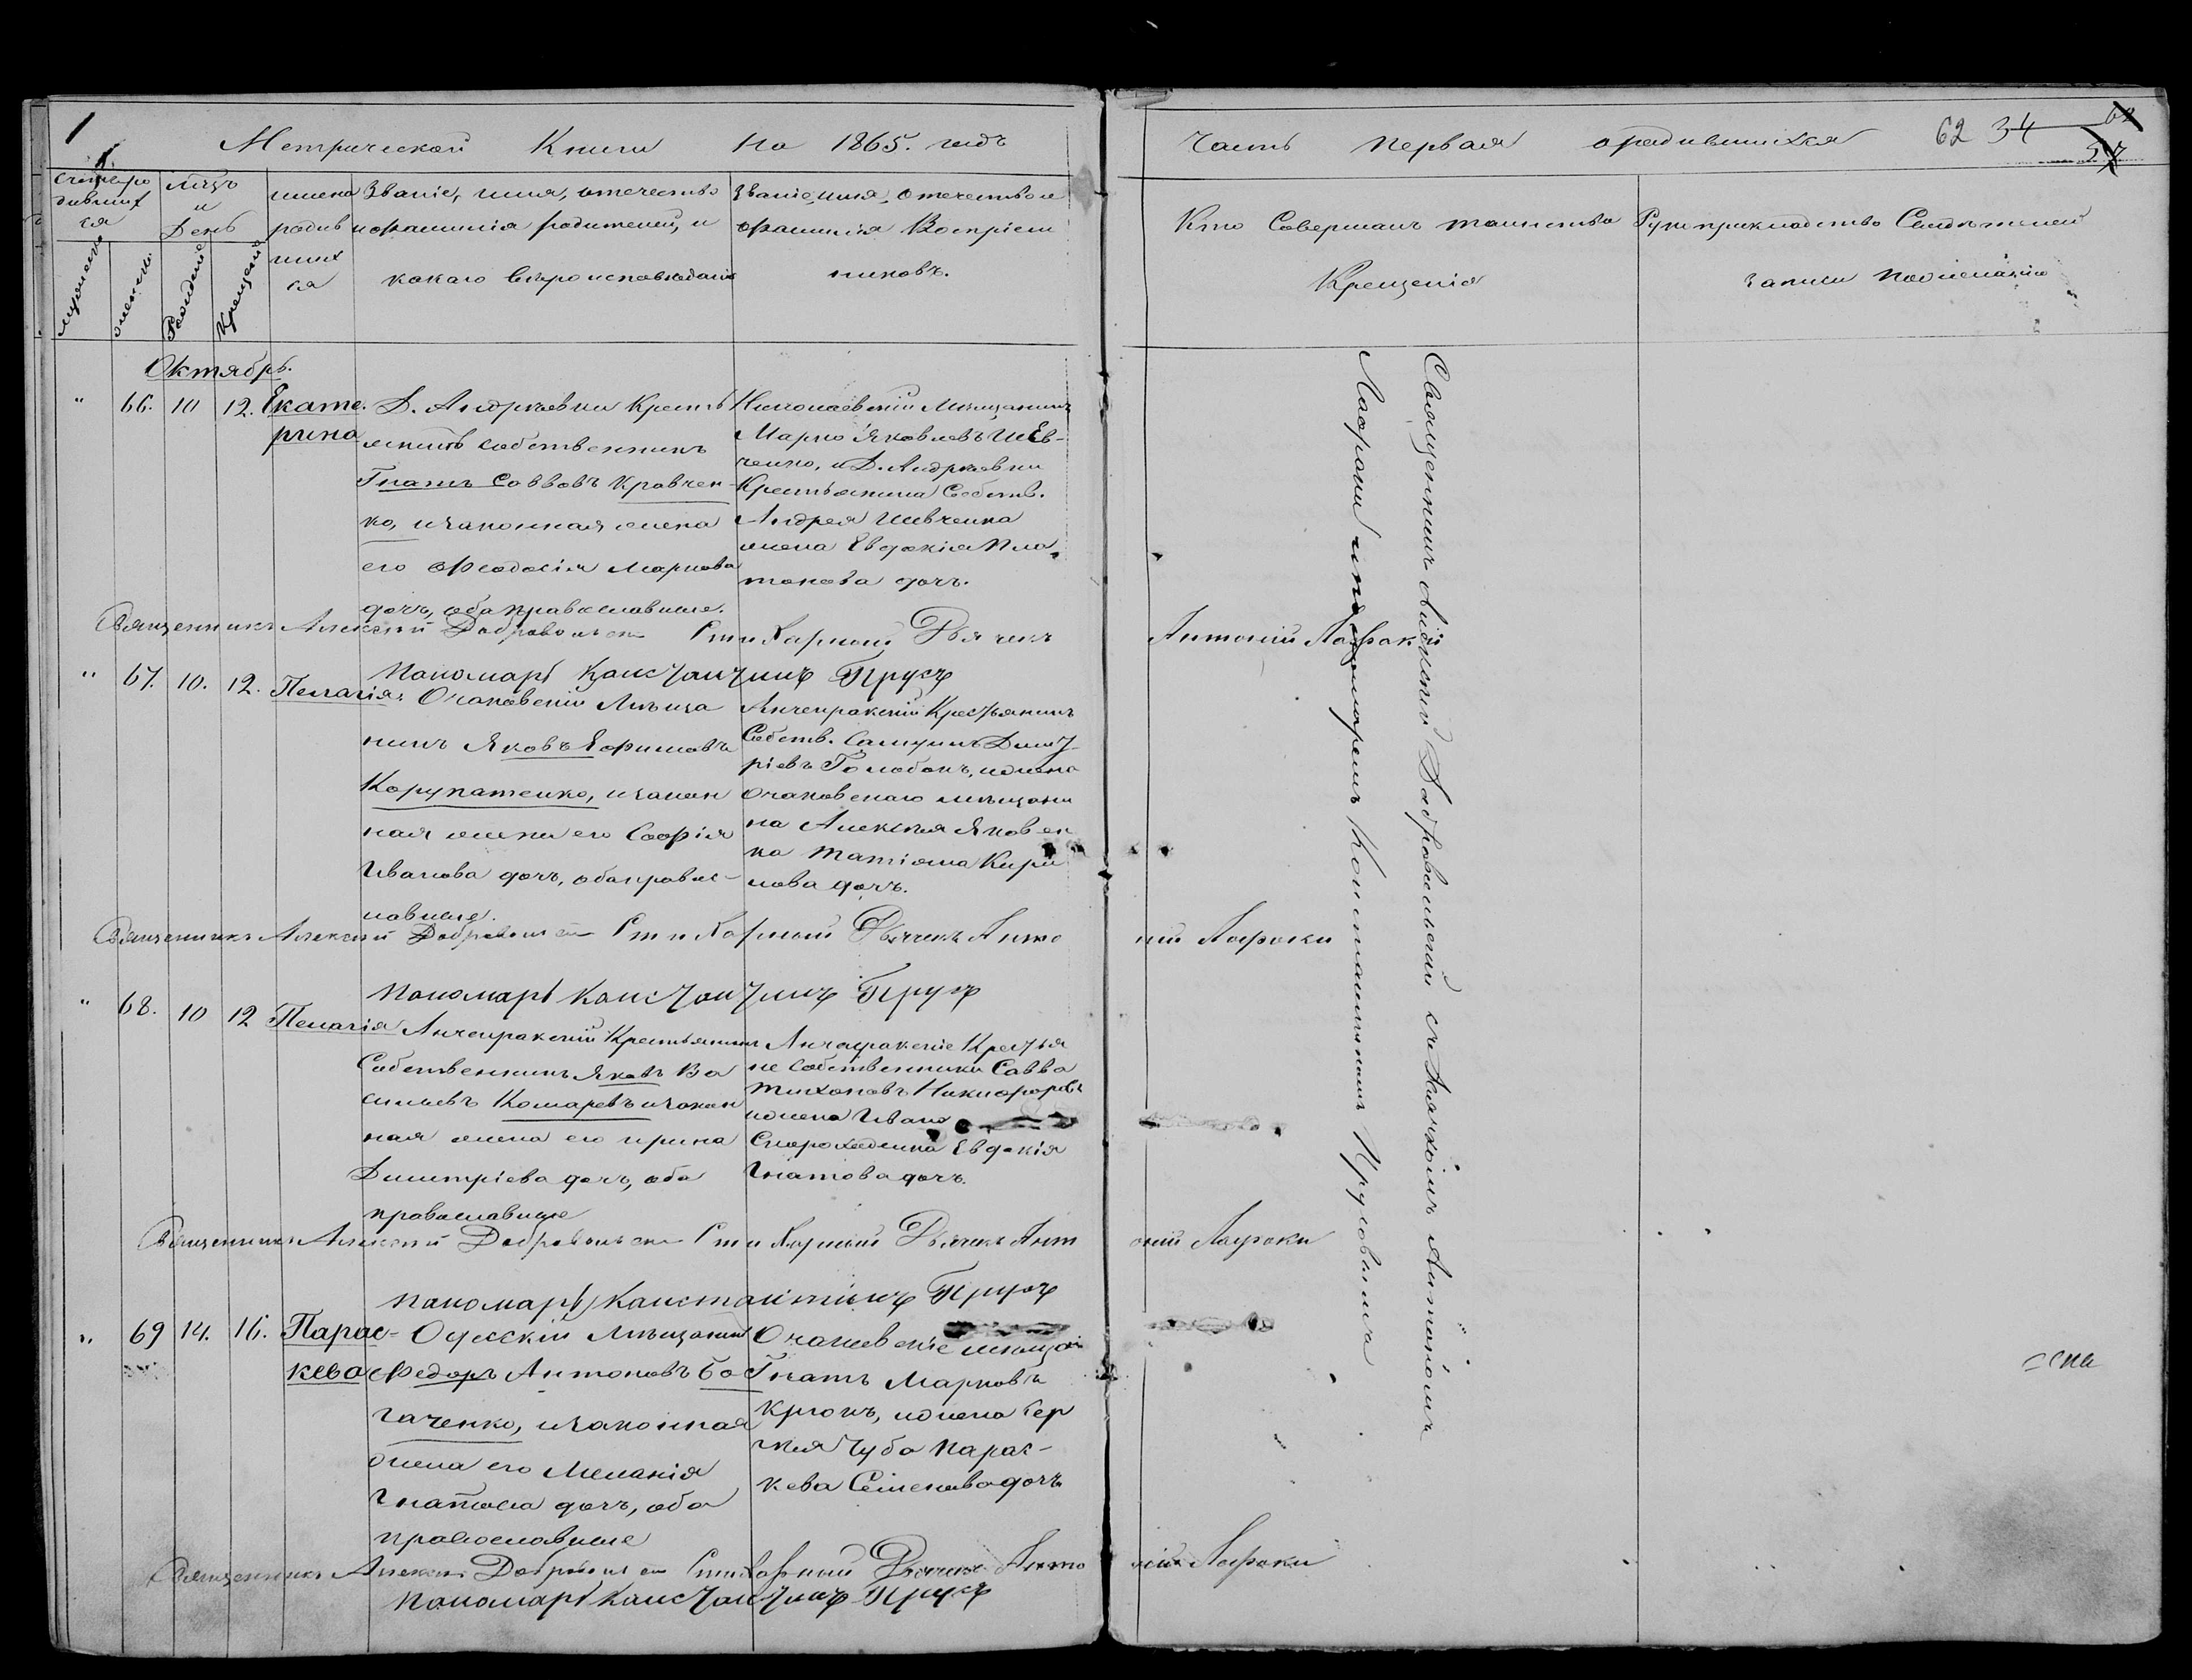 Метрической Книги На 1865. годъ
Часть первая о родившихся 62 34
Счетъ ро
дивших
ся
мужеска
женск.
Мѣсяцъ
и
День
Рожденіе
Крещеніе
имена
родив
ших
ся
Званіе, имя, отечество
и фамилія родителей, и
какого вѣроисповѣданія
Званіе, имя, отечество и
фамилія Воспріем
никовъ.
Кто Совершалъ таинство
Крещенія
Рукоприкладство Свидѣтелей
записи по желанію
Октябрь.
" 66. 10 12. Екате.
рина
Д. Андреевки Кресть
янинъ собственникъ
Гнатъ Саввовъ Кравчен-
ко, и законная жена
его Феодосія Маркова
дочь, оба православные.
Николаевскій Мѣщанинъ
Марко Яковлевъ Шев-
ченко, и Д. Андреевки
Крестьянина Собств.
Андрея Шевченка
жена Евдокія Пла
тонова дочь.
Священникъ Алексій Добровольскій Стихарный Дьячекъ Антоній Лафаки
Пономарь Константинъ Прусъ
" 67. 10. 12. Пелагія.
Очаковскій Мѣща
нинъ Яковъ Ефимовъ
Корупатенко, и закон
ная жена его Софія
Иванова дочь, оба правос-
лавные.
Анчекракскій Крестьянинъ
Собств. Самуилъ Димит-
ріевъ Голобокъ, и жена
Очаковскаго мѣщани
на Алексѣя Яковен
ка Татіяна Кири
лова дочь.
Священникъ Алексій Добровольскій Стихарный Дьячекъ Антоній Лафаки
Пономарь Константинъ Прусъ
" 68. 10 12 Пелагія
Анчекракскій Крестьянинъ
Собственникъ Яковъ Ва
сильевъ Комаревъ и закон
ная жена его Ирина
Димитріева дочь, оба
православные
Анчекракскіе Крестья
не собственники Савва
Тихоновъ Никифоровъ
и жена Ивана
Скороходенка Евдокія
Гнатова дочь.
Священникъ Алексій Добровольскій Стихарный Дьячекъ Антоній Лафаки
Пономарь Константинъ Прусъ
" 69 14. 16. Парас-
кева
Одесскій Мѣщанинъ
Федоръ Антоновъ Бо
гаченко, и законная
жена его Меланія
Гнатова дочь, оба
православные
Очаковскіе мѣщан
Гнатъ Марковъ
Крюкъ, и жена Сер
гѣя Чуба Парас-
кева Семенова дочь
Священникъ Алексій Добровольскій Стихарный Дьячекъ Антоній Лафаки
Пономарь Константинъ Прусъ
Священникъ Алексій Добровольскій съ дьячкомъ Антоніемъ
Лафаки и пономаремъ Константиномъ Прусовымъ